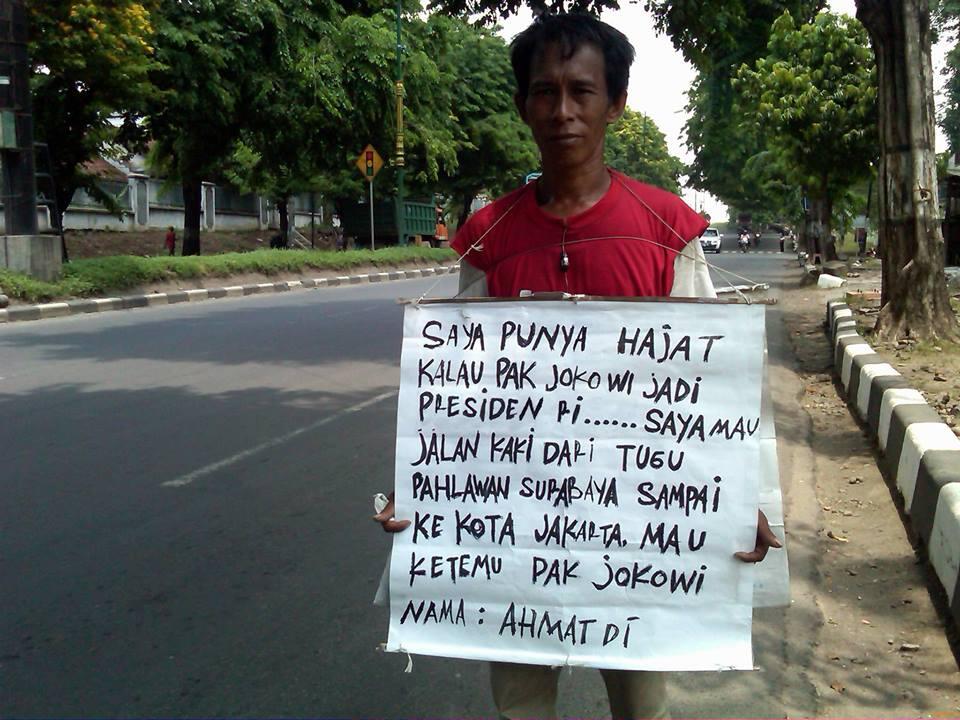 SAYA PUNYA HAJAT
KALAU PAK JOKOWI JADI
PRESIDEN RI...... SAYA MAU
JALAN KAKI DARI TUGU
PAHLAWAN SURABAYA SAMPAI
KE KOTA JAKARTA. MAU
KETEMU PAK JOKOWI
NAMA : AHMAT DI